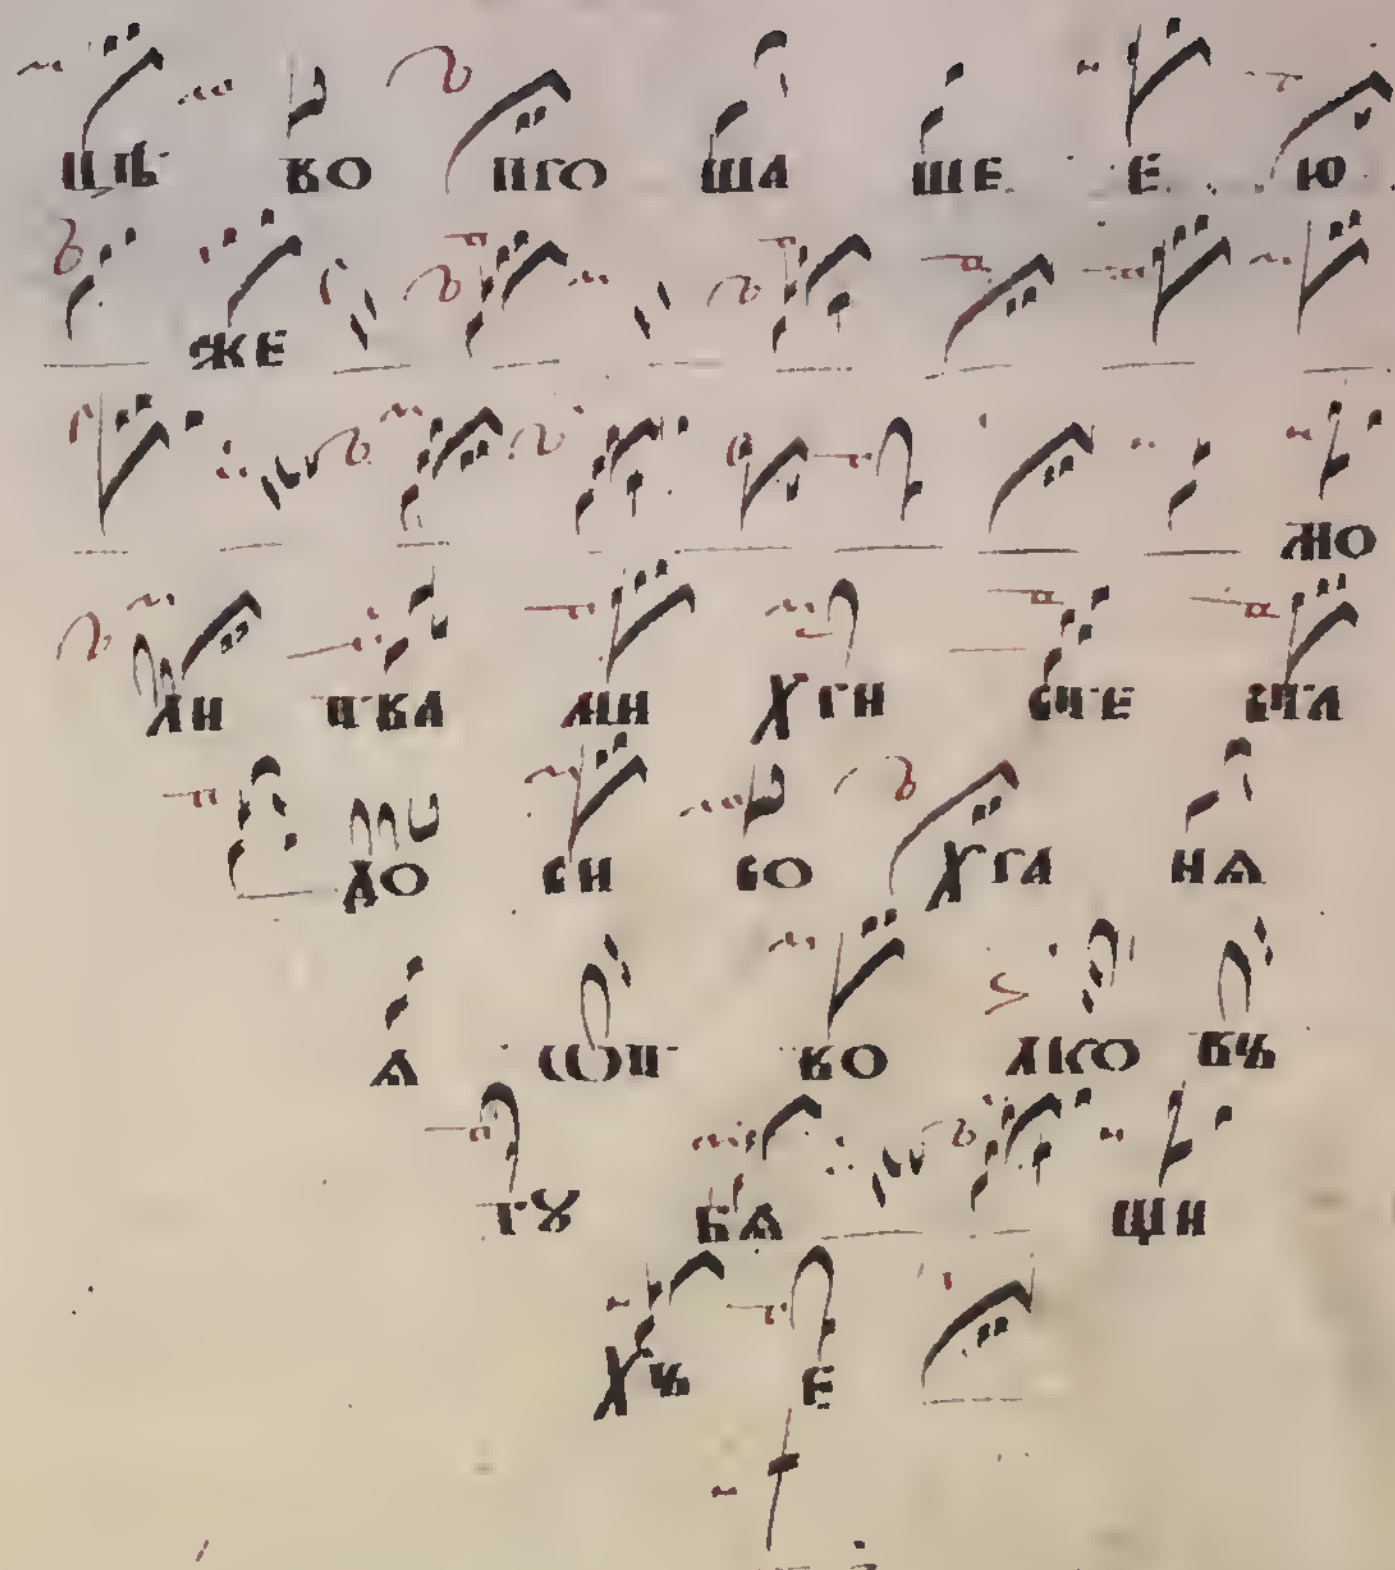 ЦѢ ВО ПГО ША ШЕ Е Ю
ЖЕ
МО
ЛИ П ВА МИ ХГИ СПЕ СПА
ДО СИ СО ХГА НѦ
Ѧ ѠП ВО ЛКО ВЪ
ГꙊ БѦ ЩИ
ХЪ Е